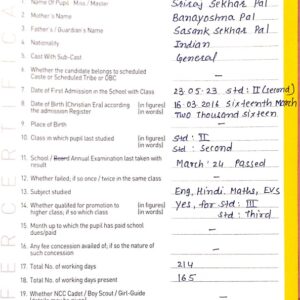 1. Name Of Pupil Miss / Master Shiraj Sekhar Pal
2. Mother's Name Bandyoshna Pal
3. Father's / Guardian's Name Sasank Sekhar Pal
4. Nationality Indian
5. Cast With Sub-Cast General
6. Whether the candidate belongs to scheduled
Caste or Scheduled Tribe or OBC —
7. Date of First Admission in the School with Class 23.05.23 Std: II (second)
8. Date of Birth (Christian Era) according (in figures) 16.03.2016 Sixteenth March
the admission Register (in words) Two thousand sixteen
9. Place of Birth —
10. Class in which pupil last studied (in figures) Std: II
(in words) Std: Second
11. School / Board Annual Examination last taken with
result March '24 Passed
12. Whether failed, if so once / twice in the same class —
13. Subject studied Eng, Hindi, Maths, EVS
14. Whether qualified for promotion to (in figures) Yes, for Std: III
higher class, if so which class (in words) Std: Third
15. Month up to which the pupil has paid school
dues/paid —
16. Any fee concession availed of; if so the nature of
such concession —
17. Total No. of working days 214
18. Total No. of working days present 165
19. Whether NCC Cadet / Boy Scout / Girl-Guide
FER CERTIFICA